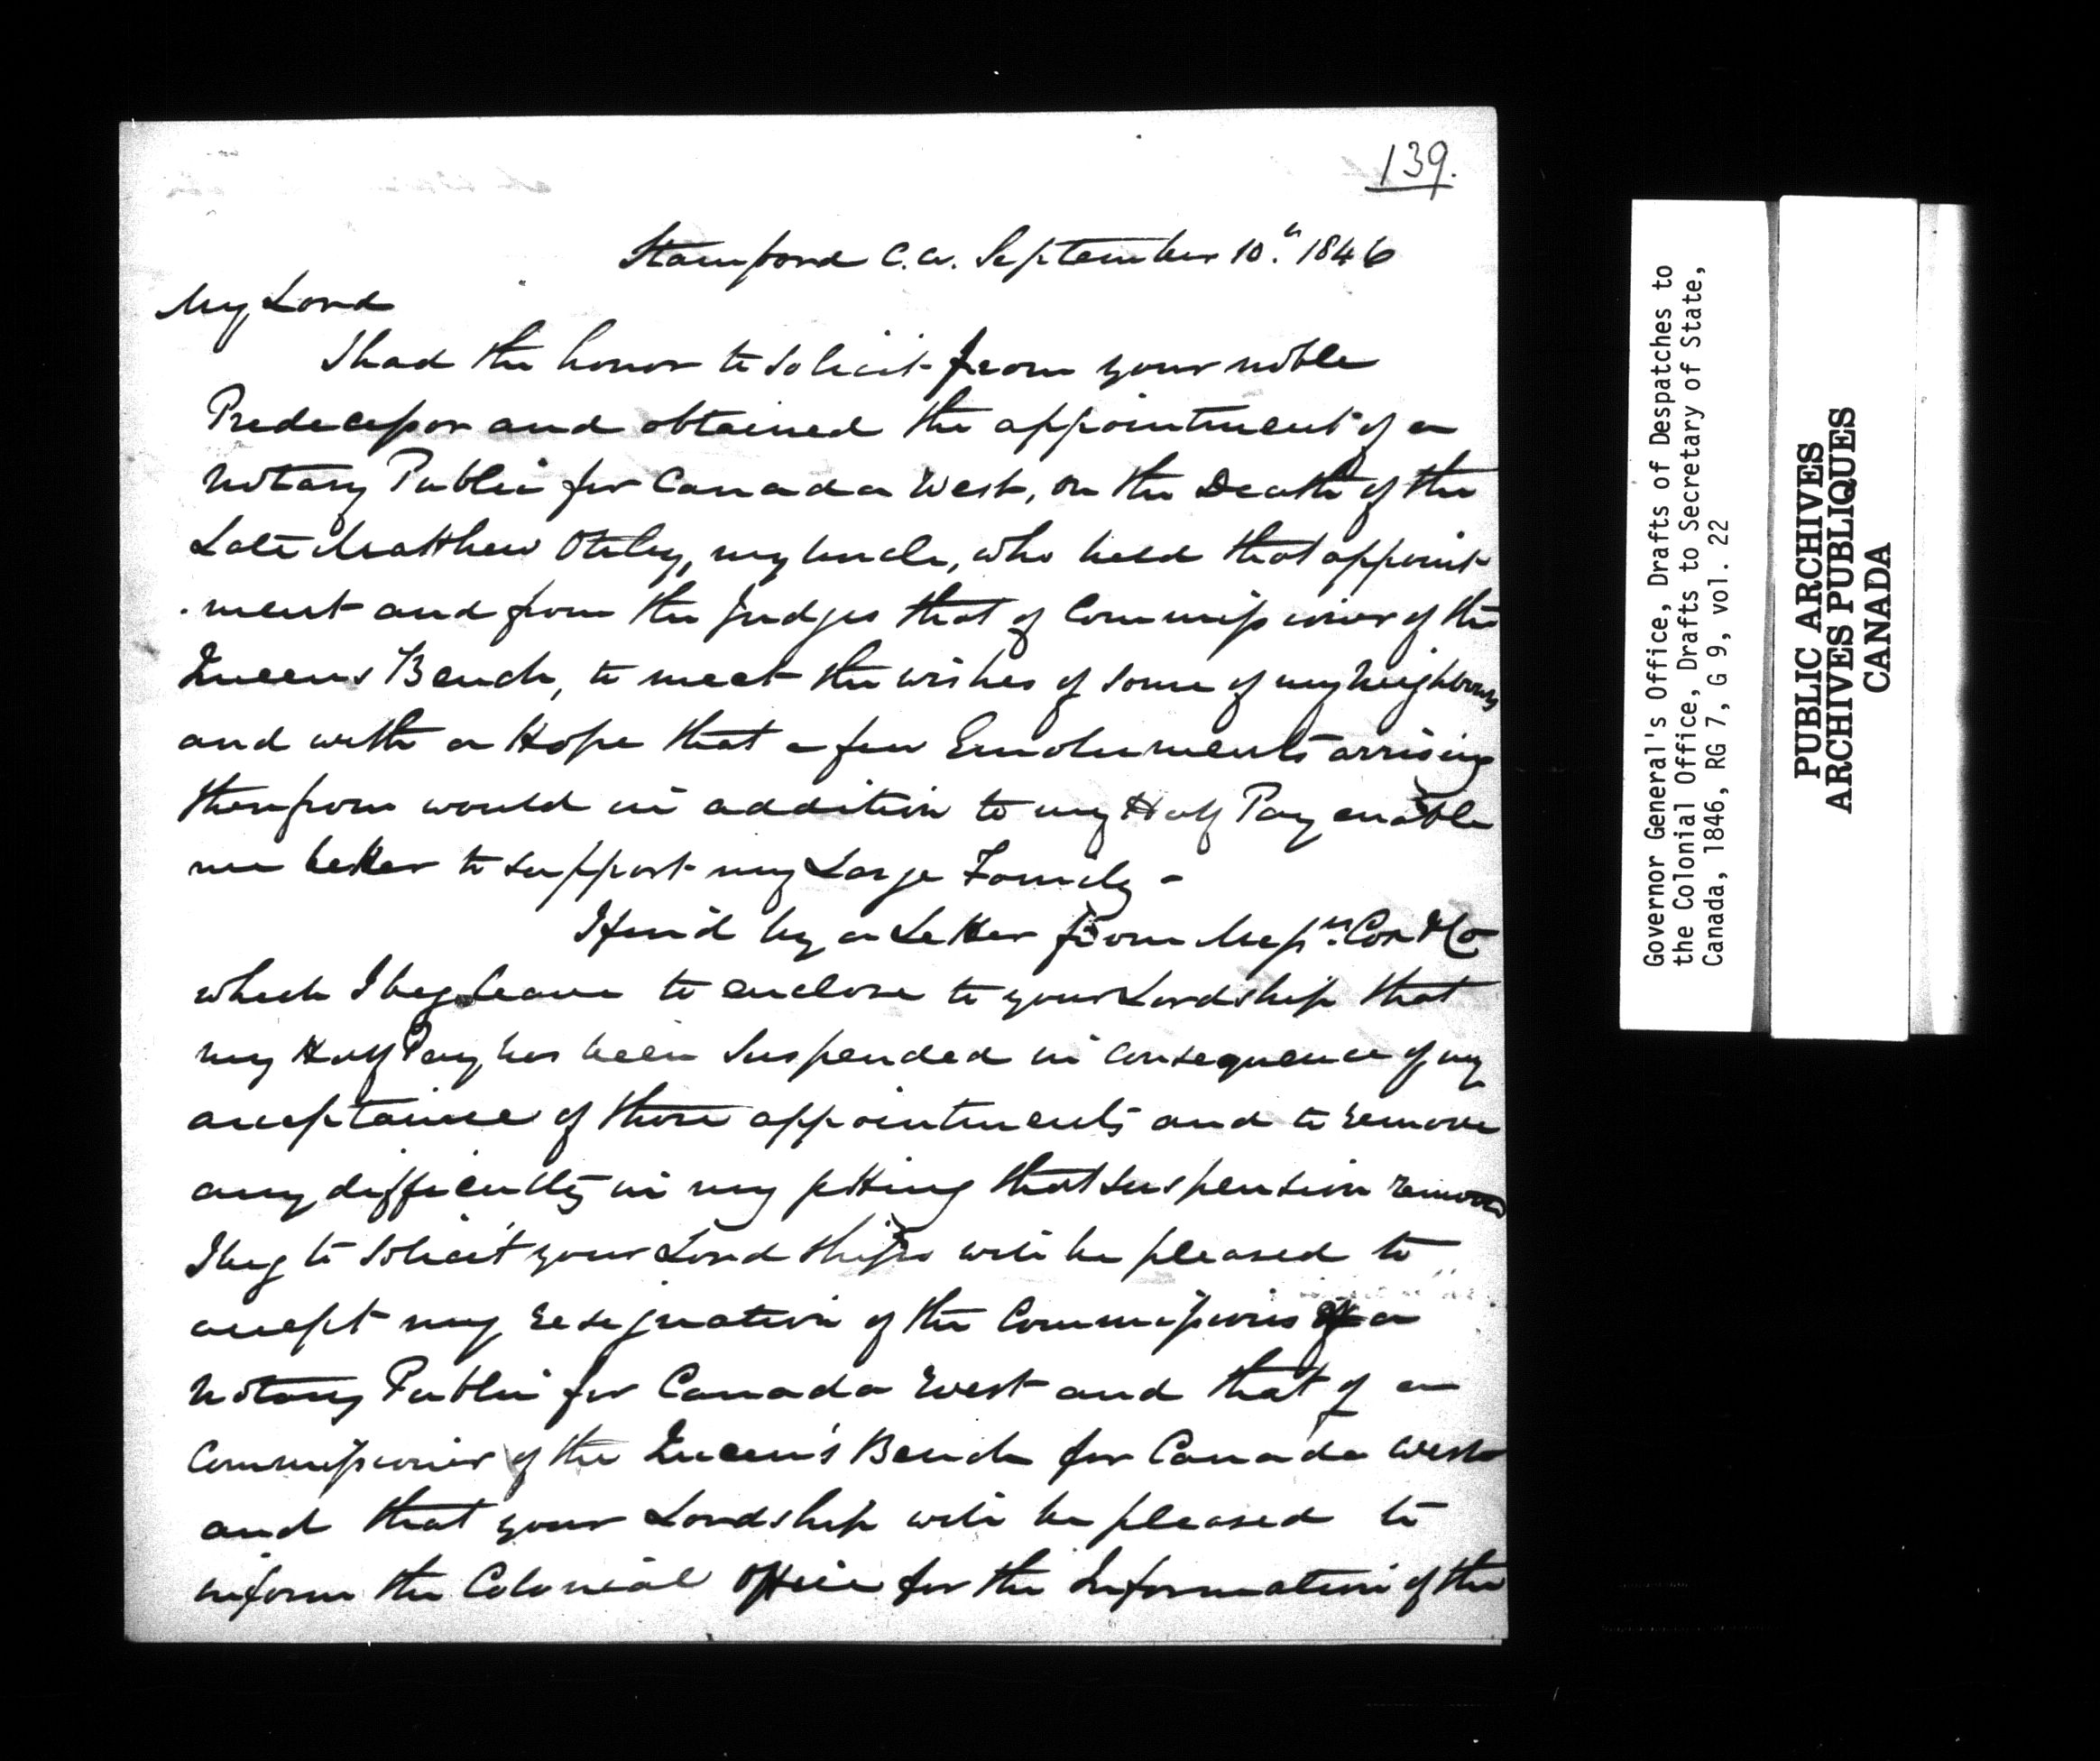 139.
Stamford C.W. September 10.th 1846
My Lord
I had the honor to solicit from your noble
Predecessor and obtained the appointment of a
Notary Public for Canada West, on the Death of the
Late Matthew Ottley, my Uncle, who held that appoint
-ment and from the Judges that of Commissioner of the
Queens Bench, to meet the wishes of some of my Neighbours
and with a Hope that a few Emoluments arrising
therefrom would in addition to my Half Pay enable
me better to support my Large Family -
I find by a Letter from Messrs. Cox & Co
which I beg leave to enclose to your Lordship that
my Half Pay has been Suspended in consequence of my
acceptance of those appointments and to remove
any difficulty in my getting that Suspension removed
I beg to Solicit your Lordship will be pleased to
accept my resignation of the Commissions of a
Notary Public for Canada West and that of a
Commissioner of the Queen's Bench for Canada West
and that your Lordship will be pleased to
inform the Colonial Office for the Information of the
Governor General's Office, Drafts of Despatches to
the Colonial Office, Drafts to Secretary of State,
Canada, 1846, RG 7, G 9, vol. 22
PUBLIC ARCHIVES
ARCHIVES PUBLIQUES
CANADA